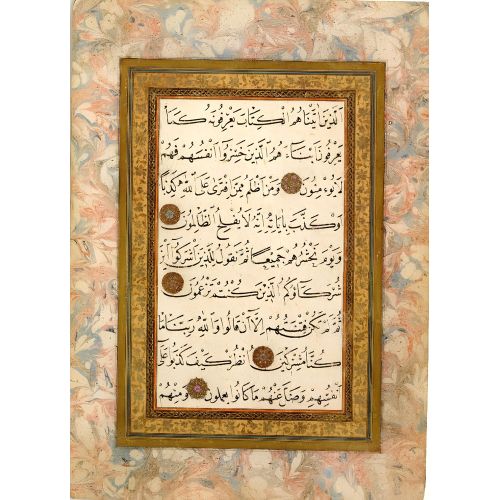 الَّذِينَ اٰتَيْنَاهُمُ الْكِتَابَ يَعْرِفُونَهُ كَمَا
يَعْرِفُونَ اَبْنَاءَهُمُ الَّذِينَ خَسِرُوا اَنْفُسَهُمْ فَهُمْ
لَا يُؤْمِنُونَ وَمَنْ اَظْلَمُ مِمَّنِ افْتَرٰى عَلَى اللّٰهِ كَذِبًا
اَوْ كَذَّبَ بِاٰيَاتِهِ اِنَّهُ لَا يُفْلِحُ الظَّالِمُونَ
وَيَوْمَ نَحْشُرُهُمْ جَمِيعًا ثُمَّ نَقُولُ لِلَّذِينَ اَشْرَكُوا اَيْنَ
شُرَكَاؤُكُمُ الَّذِينَ كُنْتُمْ تَزْعُمُونَ
ثُمَّ لَمْ تَكُنْ فِتْنَتُهُمْ اِلَّا اَنْ قَالُوا وَاللّٰهِ رَبِّنَا مَا
كُنَّا مُشْرِكِينَ اُنْظُرْ كَيْفَ كَذَبُوا عَلٰى
اَنْفُسِهِمْ وَضَلَّ عَنْهُمْ مَا كَانُوا وَمِنْهُمْ